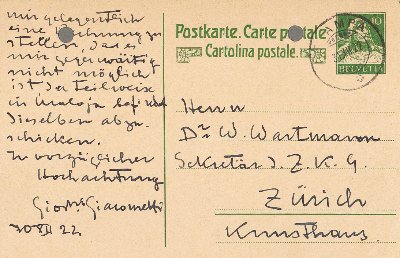 mir gelegentlich
eine Rechnung zu
stellen, da es
mir gegenwärtig
nicht möglich
ist der teilweis
in Maloja befindl
dieselben abzu
schicken.
In vorzüglicher
Hochachtung
Giov. Giacometti
30 XII 22.
Postkarte. Carte postale.
Cartolina postale.
10
HELVETIA
Herrn
Dr. W. Wartmann
Sekretär d. Z. K. G.
Zürich
Kunsthaus.